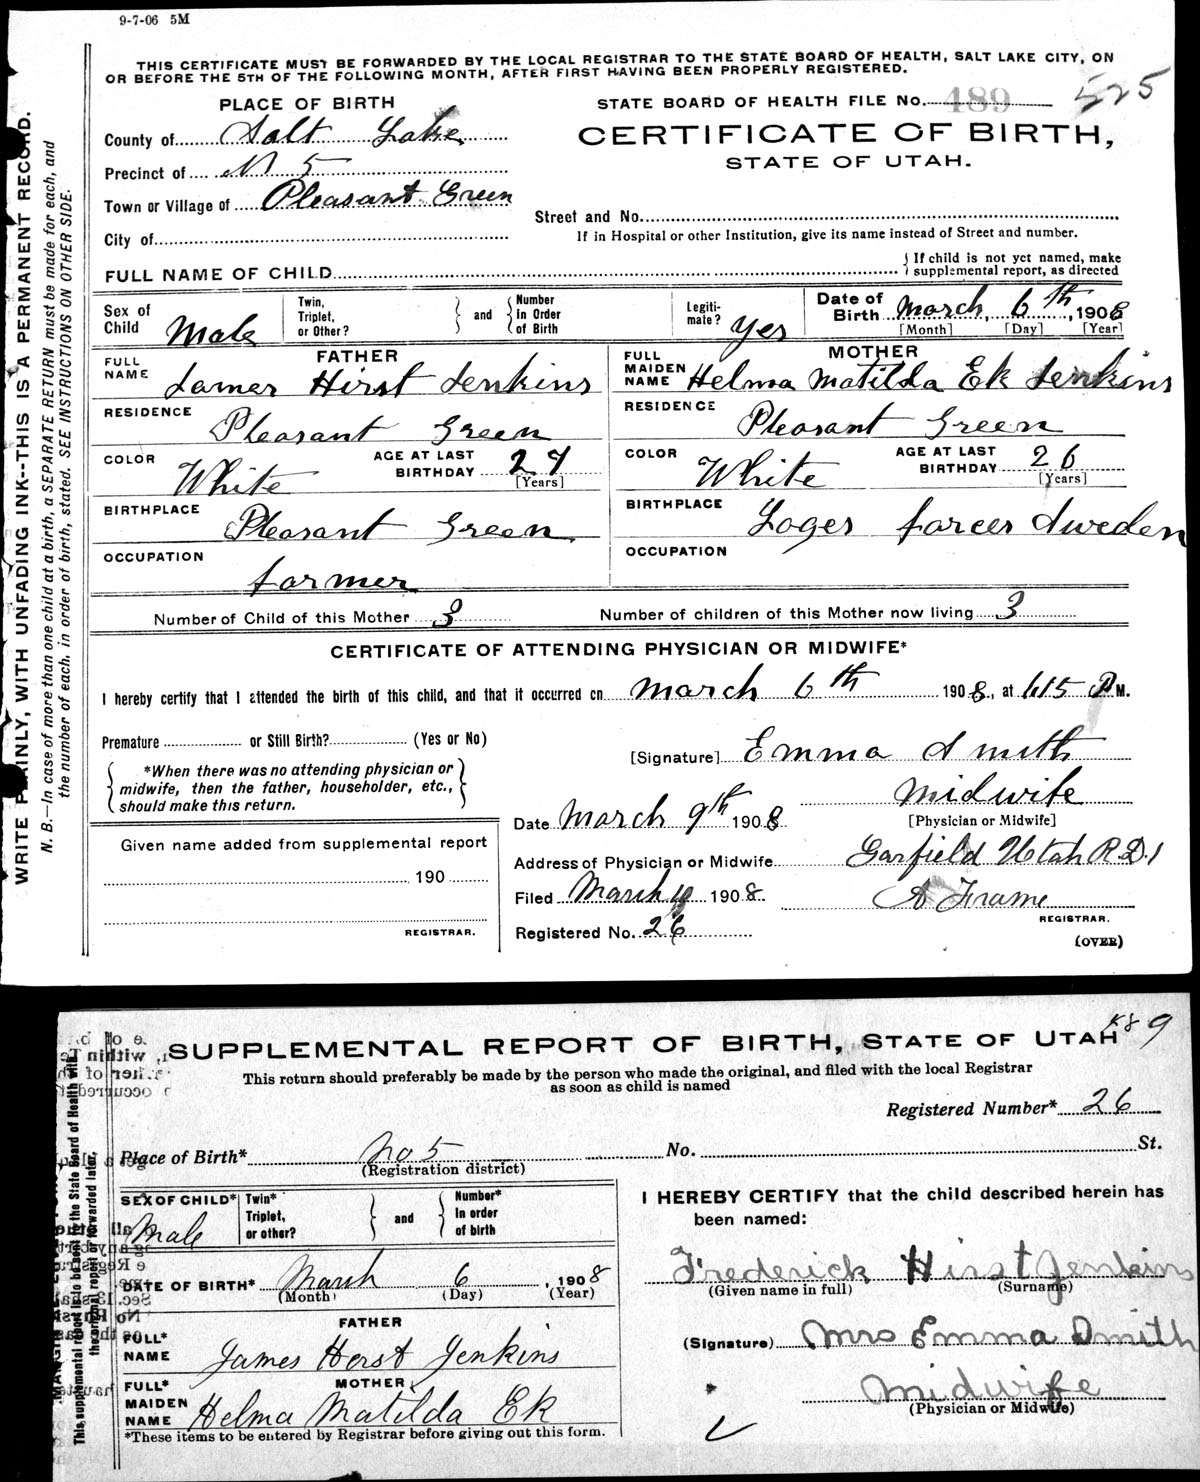 9-7-06 5M
THIS CERTIFICATE MUST BE FORWARDED BY THE LOCAL REGISTRAR TO THE STATE BOARD OF HEALTH, SALT LAKE CITY, ON
OR BEFORE THE 5TH OF THE FOLLOWING MONTH, AFTER FIRST HAVING BEEN PROPERLY REGISTERED.
WRITE PLAINLY, WITH UNFADING INK--THIS IS A PERMANENT RECORD.
N. B.—In case of more than one child at a birth, a SEPARATE RETURN must be made for each, and
the number of each, in order of birth, stated. SEE INSTRUCTIONS ON OTHER SIDE.
PLACE OF BIRTH
County of Salt Lake
Precinct of N 5
Town or Village of Pleasant Green
City of
STATE BOARD OF HEALTH FILE No. 489 525
CERTIFICATE OF BIRTH,
STATE OF UTAH.
Street and No.
If in Hospital or other Institution, give its name instead of Street and number.
FULL NAME OF CHILD
{ If child is not yet named, make
supplemental report, as directed
Sex of Child Male
Twin, Triplet, or Other? } and { Number in Order of Birth
Legiti-mate? yes
Date of Birth March 6th, 1908
[Month] [Day] [Year]
FATHER
FULL NAME James Hirst Jenkins
RESIDENCE Pleasant Green
COLOR White AGE AT LAST BIRTHDAY 27
[Years]
BIRTHPLACE Pleasant Green
OCCUPATION farmer
MOTHER
FULL MAIDEN NAME Helma Matilda Ek Jenkins
RESIDENCE Pleasant Green
COLOR White AGE AT LAST BIRTHDAY 26
[Years]
BIRTHPLACE Sweden
OCCUPATION
Number of Child of this Mother 3 Number of children of this Mother now living 3
CERTIFICATE OF ATTENDING PHYSICIAN OR MIDWIFE*
I hereby certify that I attended the birth of this child, and that it occurred on March 6th 1908, at 615 P M.
Premature or Still Birth? (Yes or No)
{ *When there was no attending physician or
midwife, then the father, householder, etc.,
should make this return. }
[Signature] Emma Smith
Midwife
[Physician or Midwife]
Date March 9th 1908
Given name added from supplemental report
190
REGISTRAR.
Address of Physician or Midwife Garfield Utah R.D.1
Filed March 1908 A Frame
REGISTRAR.
Registered No. 26
(OVER)
K89
SUPPLEMENTAL REPORT OF BIRTH, STATE OF UTAH
This return should preferably be made by the person who made the original, and filed with the local Registrar
as soon as child is named
Registered Number* 26
Place of Birth* No 5 No. St.
(Registration district)
SEX OF CHILD* Male
Twin* Triplet, or other? } and { Number* In order of birth
DATE OF BIRTH* March 6, 1908
(Month) (Day) (Year)
FATHER
FULL* NAME James Herst Jenkins
MOTHER
FULL* MAIDEN NAME Helma Matilda Ek
*These items to be entered by Registrar before giving out this form.
I HEREBY CERTIFY that the child described herein has
been named:
Frederick Hirst Jenkins
(Given name in full) (Surname)
(Signature) Mrs Emma Smith
Midwife
(Physician or Midwife)